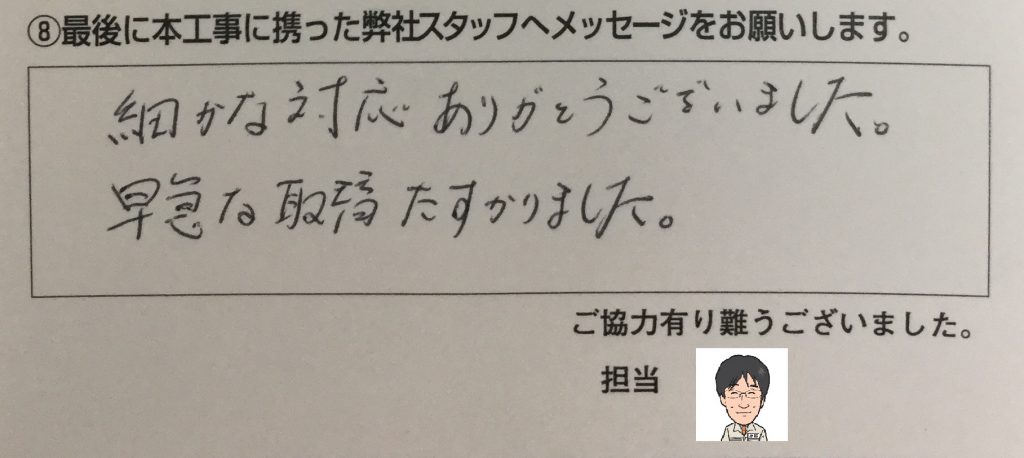 ⑧最後に本工事に携った弊社スタッフへメッセージをお願いします。
細かな対応ありがとうございました。
早急な取替たすかりました。
ご協力有り難うございました。
担当